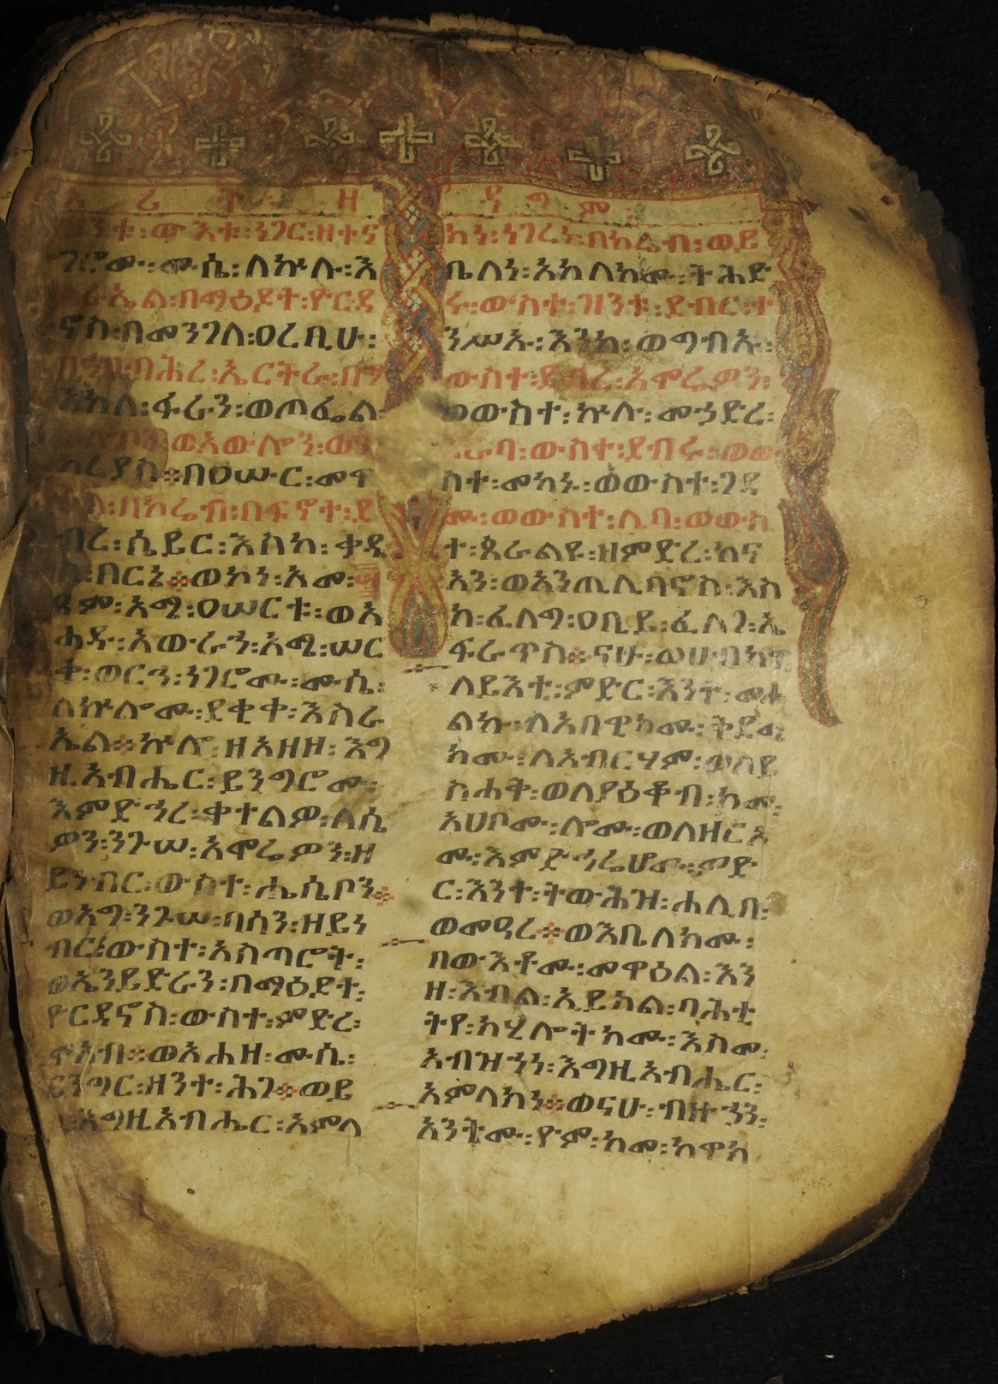 ኦሪት ዘ ዳግም
ዝንቱ፡ውእቱ፡ነገር፡ዘተና
ገሮሙ፡ሙሴ፡ለኵሉ፡እ
ስራኤል፡በማዕዶተ፡ዮርዳ
ኖስ፡በመንገለ፡ዐረቢሁ፡
ባሕረ፡ኤርትራ፡በማ
እከለ፡ፋራን፡ወጦፌል፡
ወአውሎን፡
በዐሠር፡መዋ
በኮሬብ፡በፍኖተ፡ደ
ብረ፡ሴይር፡እስከ፡ቃዴ
በርኔ፨ወኮነ፡አመ፡
ዓም፡አሜ፡ዐሠርቱ፡ወአ
ሐዱ፡አውራኅ፡አሜ፡ሠር
ቀ፡ወርኅ፡ነገሮሙ፡ሙሴ፡
ለኵሎሙ፡ደቂቀ፡እስራ
ኤል፨ኵሎ፡ዘአዘዘ፡እግ
ዚአብሔር፡ይንግሮሙ፡
እምድኅረ፡ቀተልዎ፡ለሴ
ዎን፡ንጉሠ፡አሞሬዎን፡ዘ
ይነብር፡ውስተ፡ሔሴቦን፨
ወአግ፡ንጉሠ፡ባሳን፡ዘይነ
ብር፡ውስተ፡አስጣሮት፡
ወኤንይድራን፡በማዕዶተ፡
ዮርዳኖስ፡ውስተ፡ምድረ፡
ሞአብ፨ወአሐዘ፡ሙሴ፡
ይንግር፡ዘንተ፡ሕገ፨ወይ
እግዚአብሔር፡አምላ
ክነ፡ነገረነ፡በኮሬብ፡ወይ
ቤለነ፡አከለክሙ፡ትሕድ
ሩ፡ውስተ፡ዝንቱ፡ደብር፡ተ
ንሥኡ፡እንከ፡ወግብኡ፡
ውስተ፡ደብረ፡አሞሬዎን፡
ወውስተ፡ኵሉ፡መኃድረ፡
ዓራባ፡ውስተ፡ደብሩ፡ወው
ስተ፡መካኑ፡ወውስተ፡ገዳ
ሙ፡ወውስተ፡ሊባ፡ወውስ
ተ፡ጰራልዩ፡ዘምድረ፡ከና
አን፡ወአንጢሊባኖስ፡እስ
ከ፡ፈለግ፡ዐቢይ፡ፈለገ፡ኤ
ፍራጥስ፨ናሁ፡ወሀብኩ
ለይእቲ፡ምድር፡እንተ፡መሐ
ልኩ፡ለአበዊክሙ፡ትደሉ
ክሙ፡ለአብርሃም፡ወለይ
ስሐቅ፡ወለያዕቆብ፡ከመ፡
አሀቦሙ፡ሎሙ፡ወለዘርኦ
ሙ፡እምድኅሬሆሙ፡ምድ
ር፡እንተ፡ትውሕዝ፡ሐሊበ፡
ወመዓረ፨ወእቤለክሙ፡
በውእቶሙ፡መዋዕል፡እን
ዘ፡እብል፡ኢይክል፡ባሕቲ
ትየ፡ከሂሎትክሙ፡እስመ፡
አብዝኀነ፡እግዚአብሔር፡
አምላክነ፨ወናሁ፡ብዙኃን፡
አንትሙ፡ዮም፡ከመ፡ከዋክ